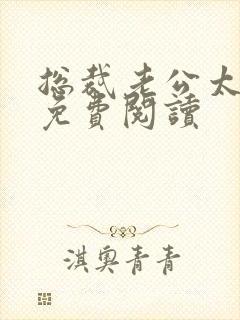 总裁老公太
免費閱讀
淇奥青青